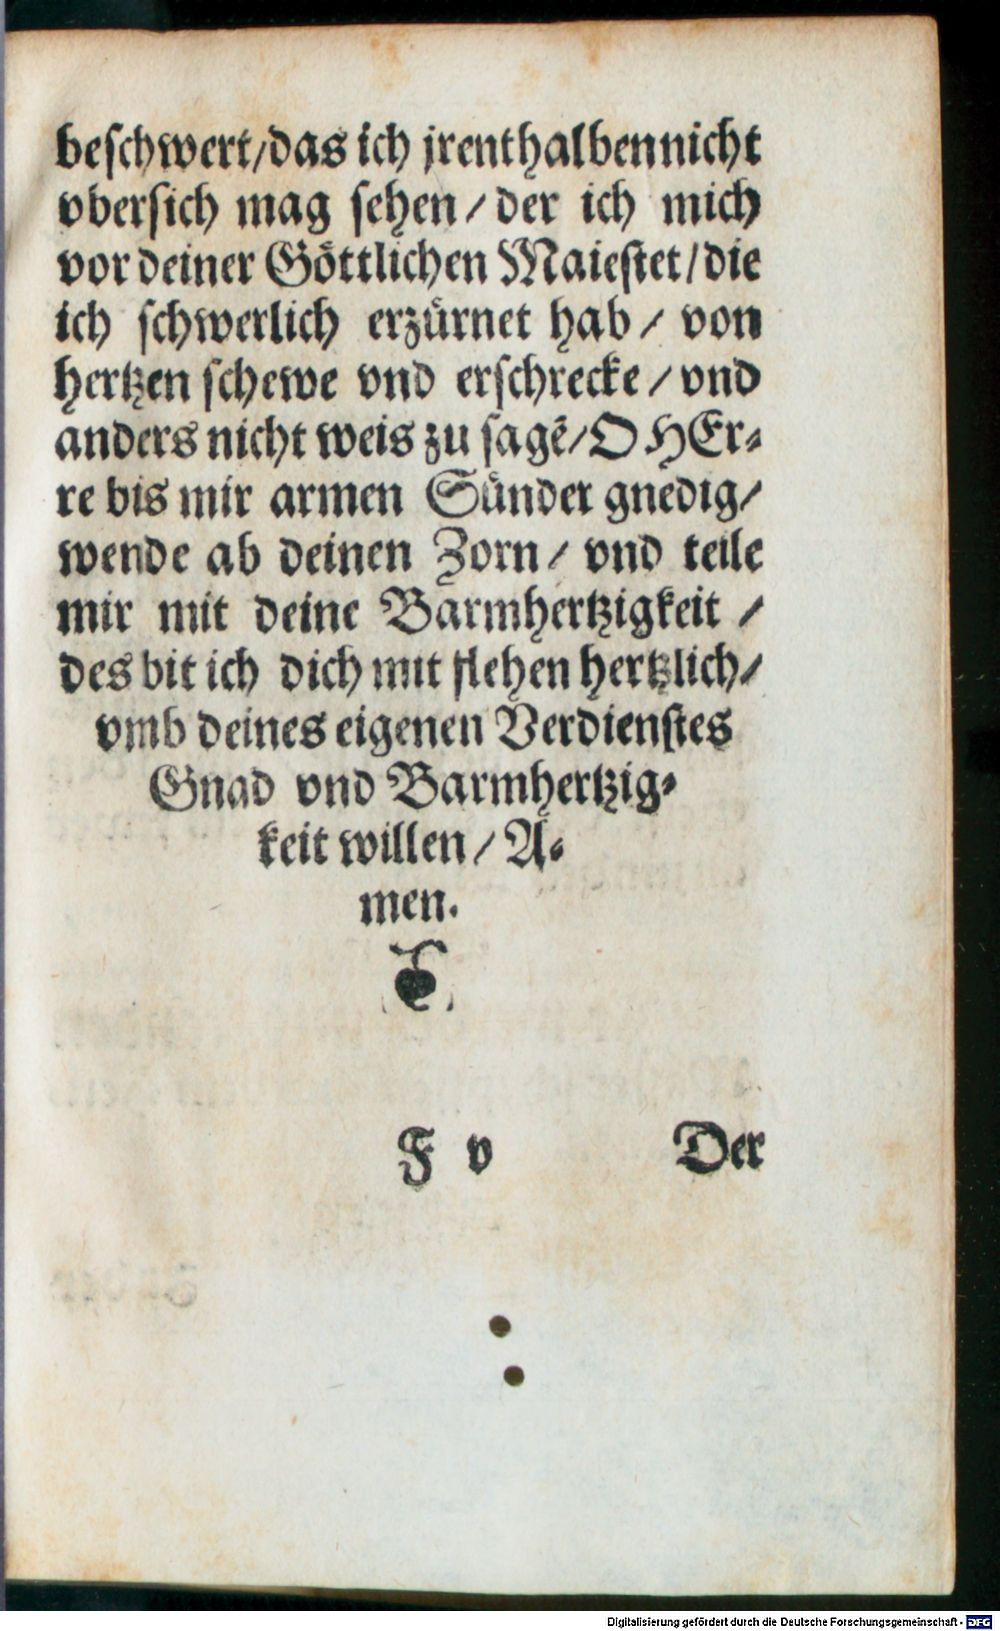 beschwert/das ich jrenthalben nicht
vbersich mag sehen/ der ich mich
vor deiner Göttlichen Maiestet/die
ich schwerlich erzürnet hab/ von
hertzen schewe vnd erschrecke/ vnd
anders nicht weis zu sagē/O HEr-
re bis mir armen Sünder gnedig/
wende ab deinen Zorn/ vnd teile
mir mit deine Barmhertzigkeit /
des bit ich dich mit flehen hertzlich/
vmb deines eigenen Verdienstes
Gnad vnd Barmhertzig-
keit willen/ A-
men.
F v Der
Digitalisierung gefördert durch die Deutsche Forschungsgemeinschaft - DFG